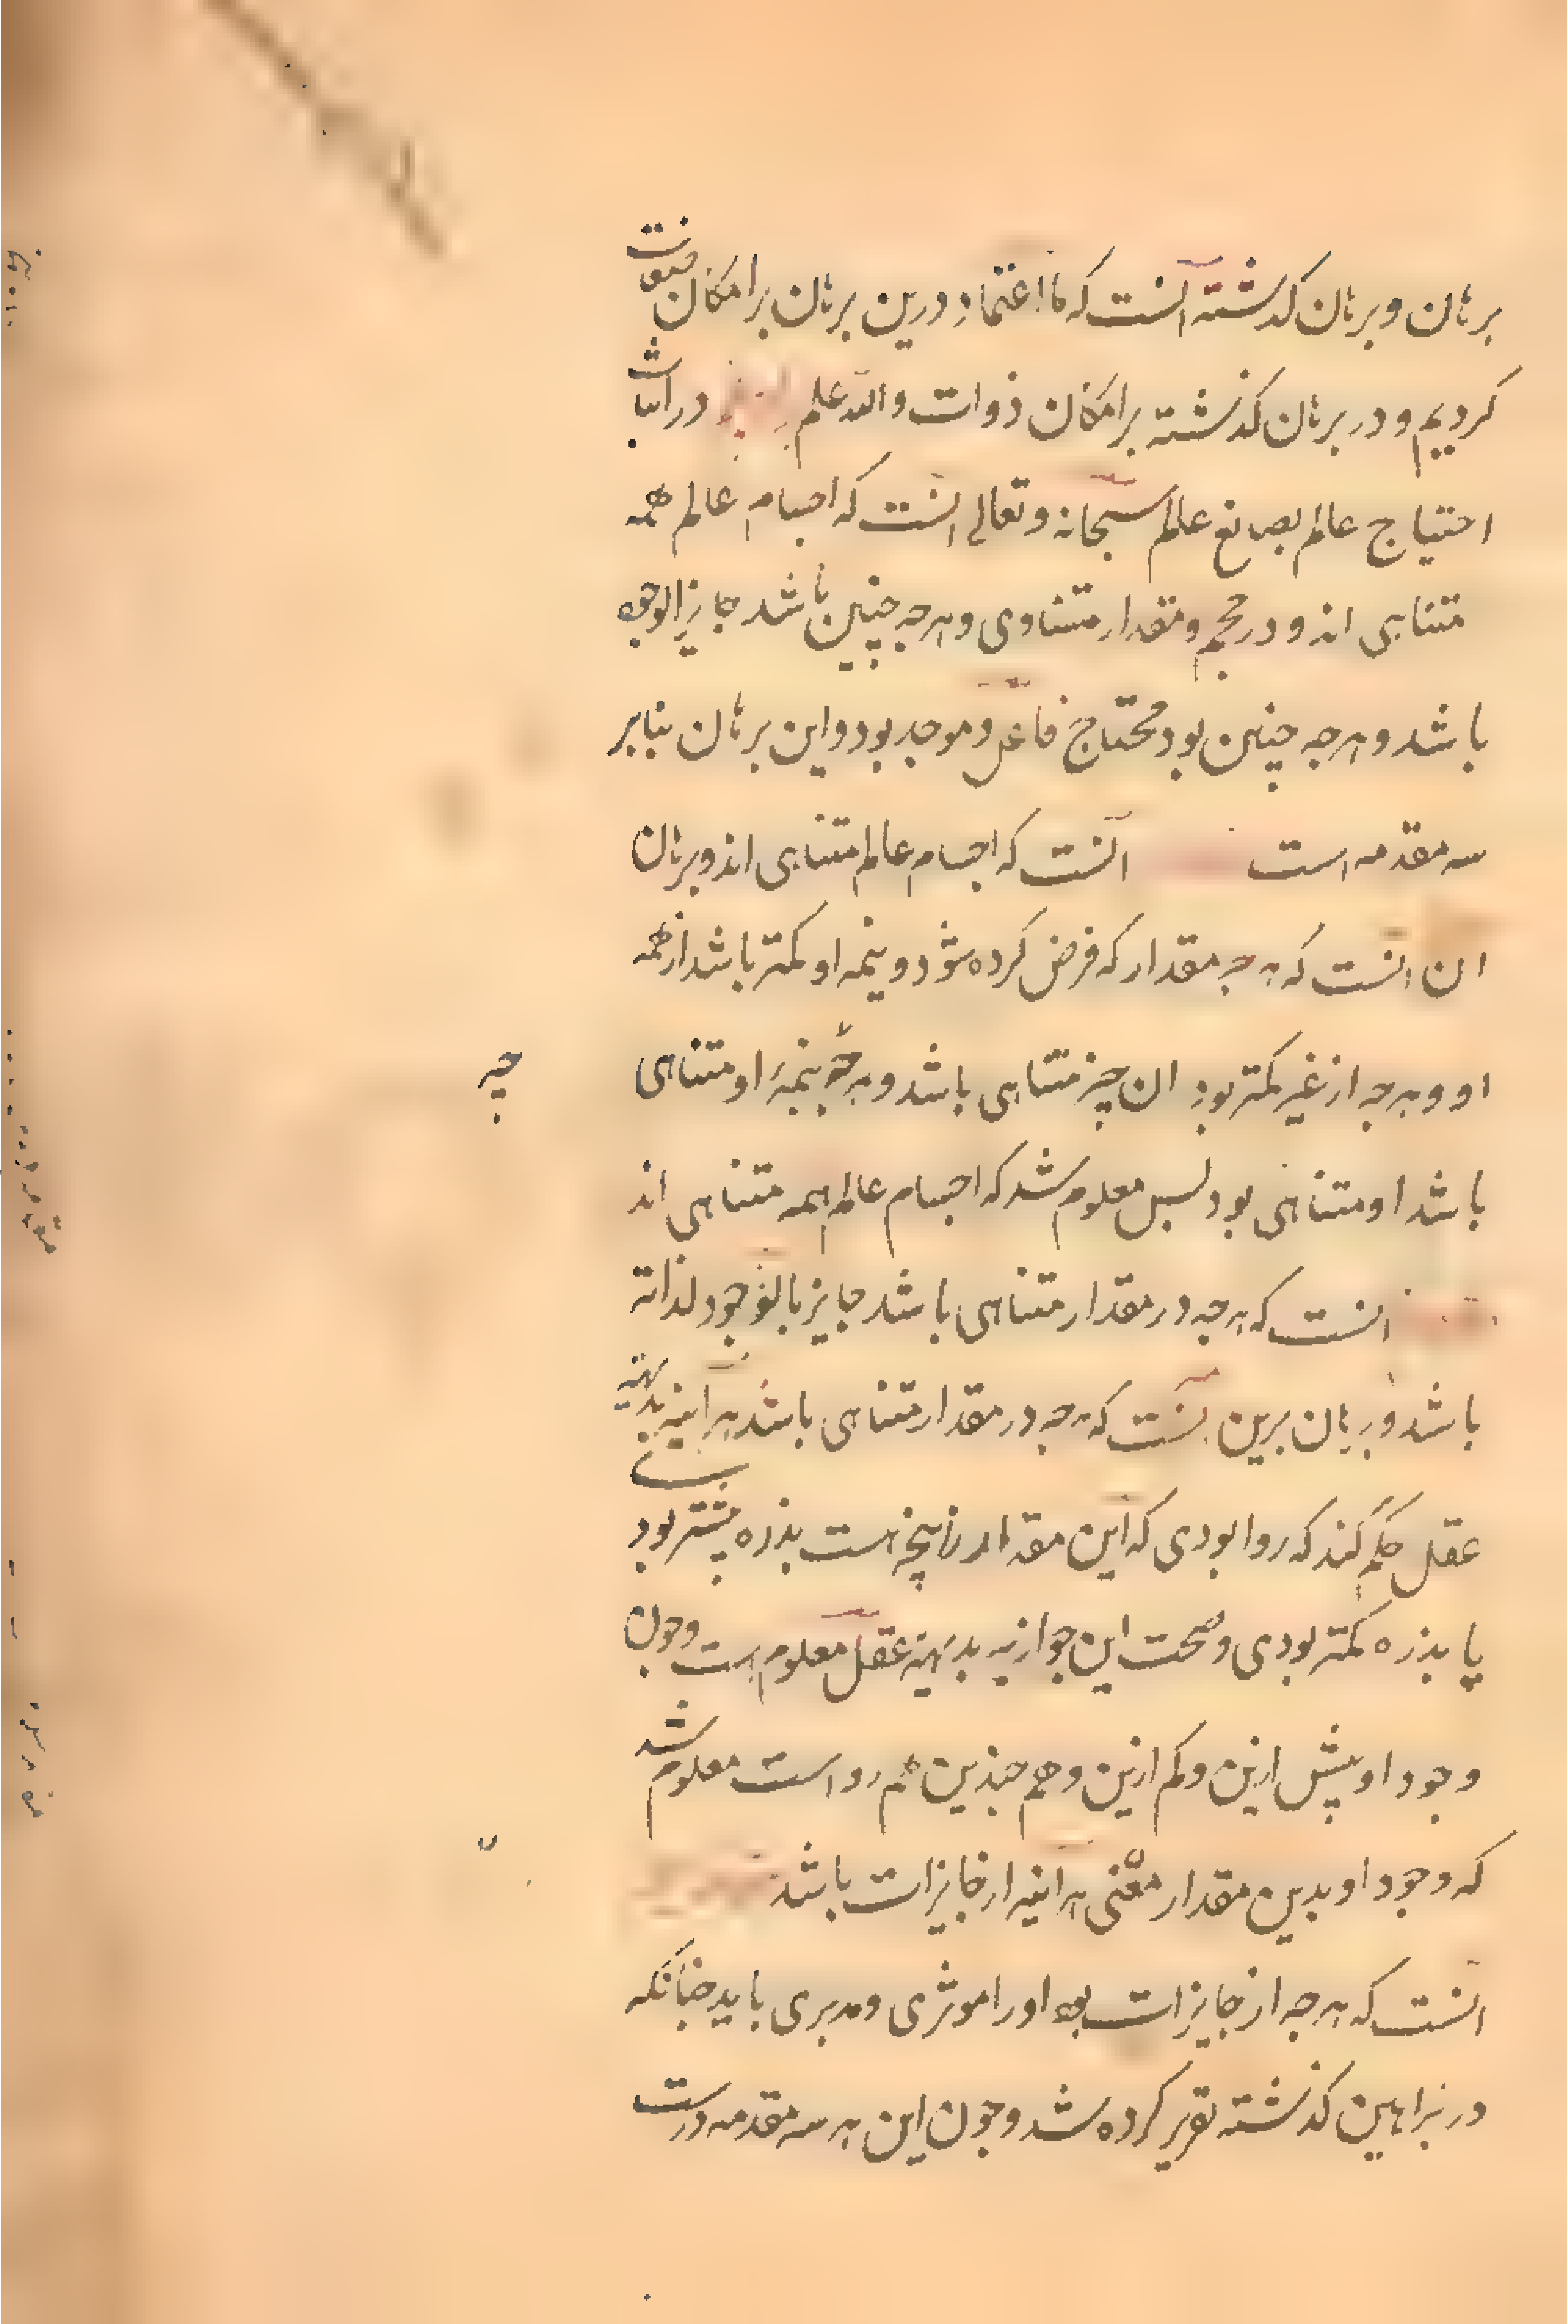 برهان و برهان کدشته آنست که ما اعتماد درین برهان بر امکان صفات
کردیم و در برهان کذشته بر امکان ذوات والله علم در اثبات
احتیاج عالم بصانع عالم سبحانه وتعالی انست که اجسام عالم همه
متناهی اند و در حجم و مقدار متساوی و هرجه چنین باشد جایزالوجود
باشد و هرجه چنین بود محتاج فاعل و موجد بود و این برهان بنابر
سه مقدمه است انست که اجسام عالم متناهی اند و برهان
ان انست که هرجه مقدار که فرض کرده شود و نیمه او کمتر باشد از همه
او و هرجه از غیر کمتر بود ان چیز متناهی باشد و هرچه نیمهٔ او متناهی
باشد او متناهی بود لسبل معلوم شد که اجسام عالم همه متناهی اند
انست که هرجه در مقدار متناهی باشد جایز بالوجود لذاته
باشد و برهان برین انست که هرجه در مقدار متناهی باشد هرآینه بدیهیه
عقل حکم کند که روا بودی که این مقدار زانچه هست بذره بیشتر بود
یا بذره کمتر بودی و صحت این جواز به بدیهه عقل معلوم است و جون
وجود او بیش ازین و کم ازین و هم جندین هم رواست معلوم شد
که وجود او بدین مقدار معنی هراینه از جایزات باشد
انست که هرجه از جایزات بود او را موثری و مدبری باید جنانکه
در براهین کذشته تقریر کرده شد و جون این هر سه مقدمه درست